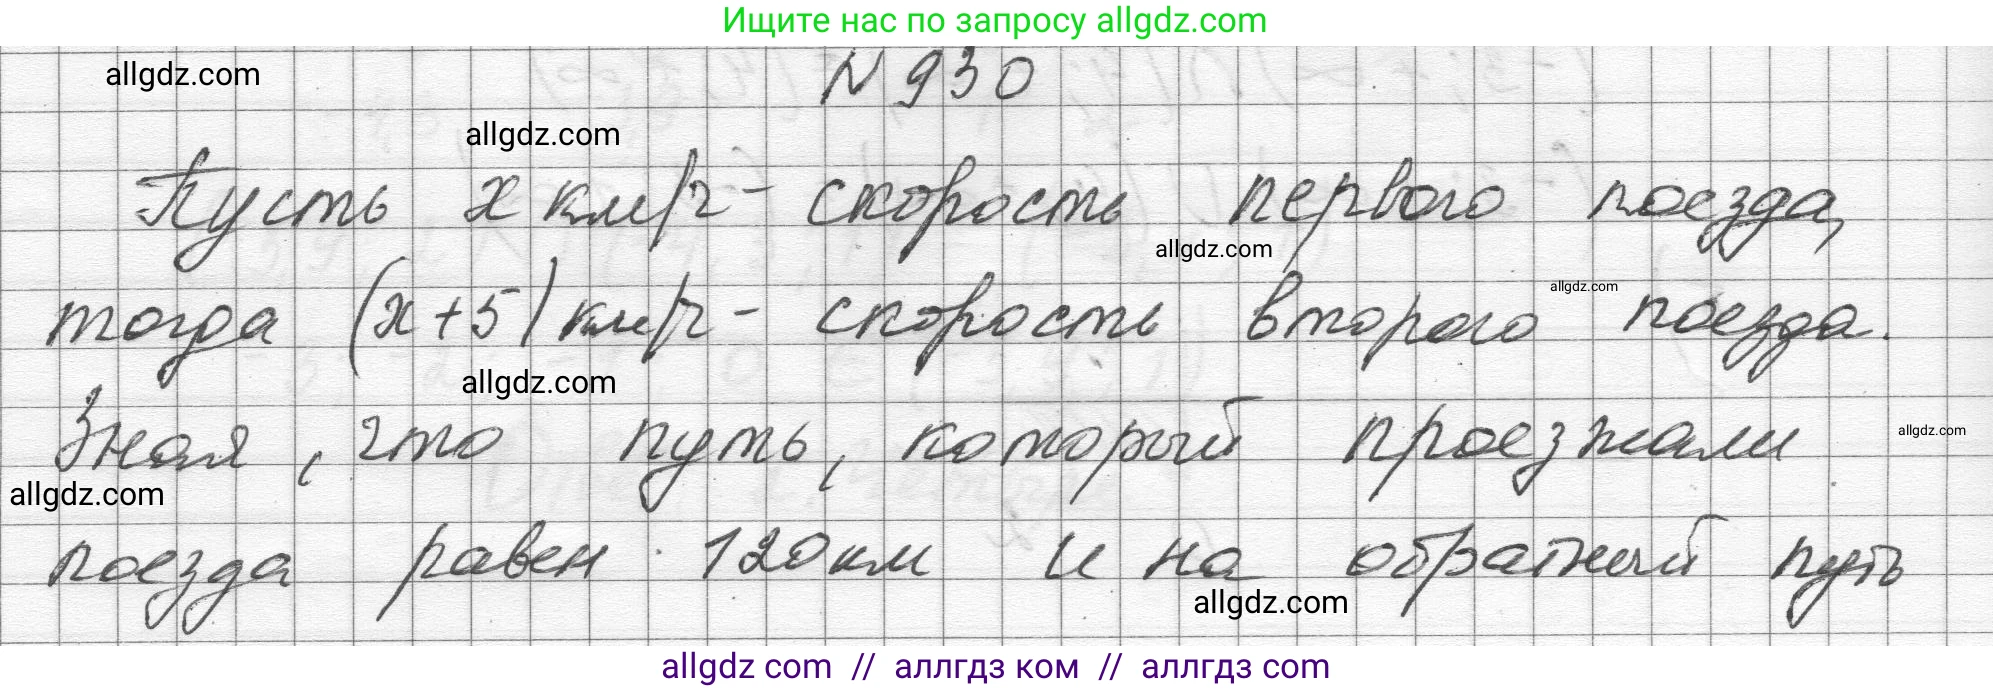 Ищите нас по запросу allgdz.com
allgdz.com
N 930
allgdz.com
Пусть x км/ч - скорость первого поезда,
allgdz.com
тогда (x+5) км/ч - скорость второго поезда.
allgdz.com
allgdz.com
Зная, что путь, который проезжали
allgdz.com
allgdz.com
поезда равен 120 км и на обратный путь
allgdz.com
allgdz com // аллгдз ком // аллгдз com